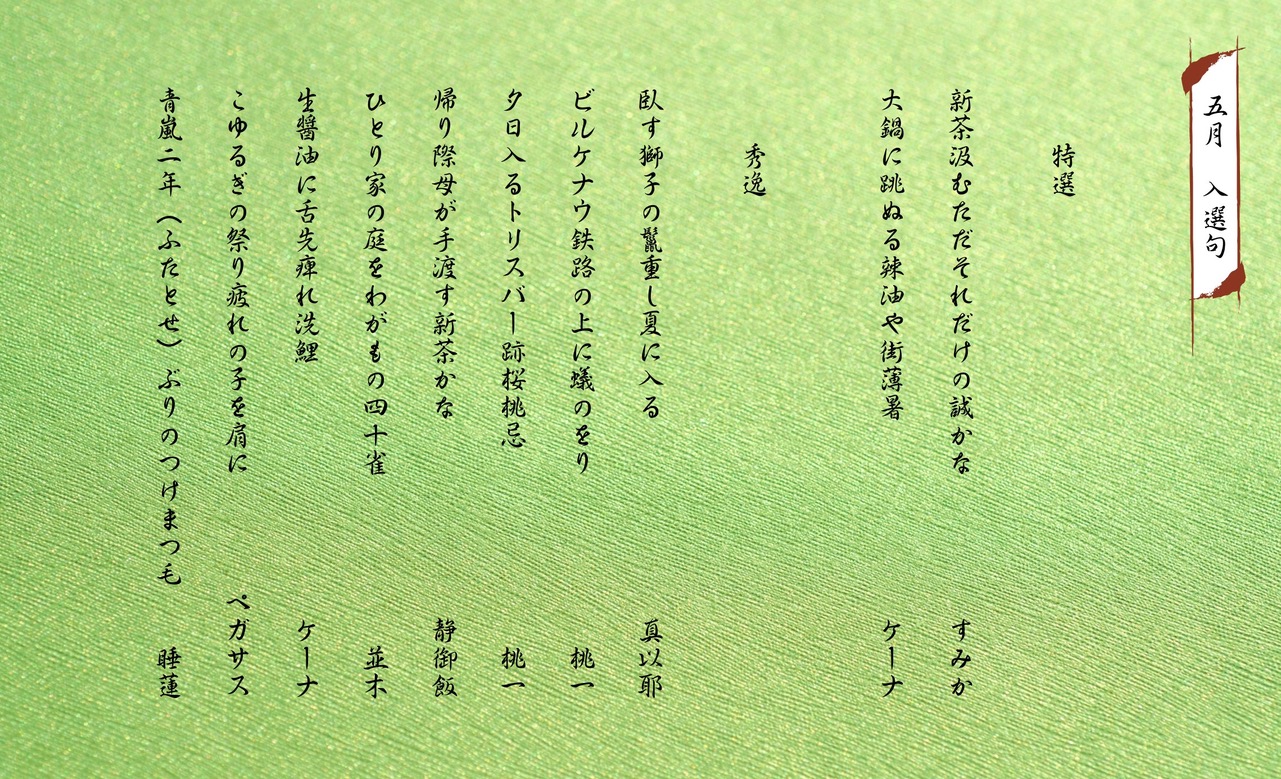 五月　入選句
特選
新茶汲むただそれだけの誠かな　すみか
大鍋に跳ぬる辣油や街薄暑　ケーナ
秀逸
臥す獅子の鬣重し夏に入る　真以耶
ビルケナウ鉄路の上に蟻のをり　桃一
夕日入るトリスバー跡桜桃忌　桃一
帰り際母が手渡す新茶かな　静御飯
ひとり家の庭をわがもの四十雀　並木
生醤油に舌先痺れ洗鯉　ケーナ
こゆるぎの祭り疲れの子を肩に　ペガサス
青嵐二年（ふたとせ）ぶりのつけまつ毛　睡蓮